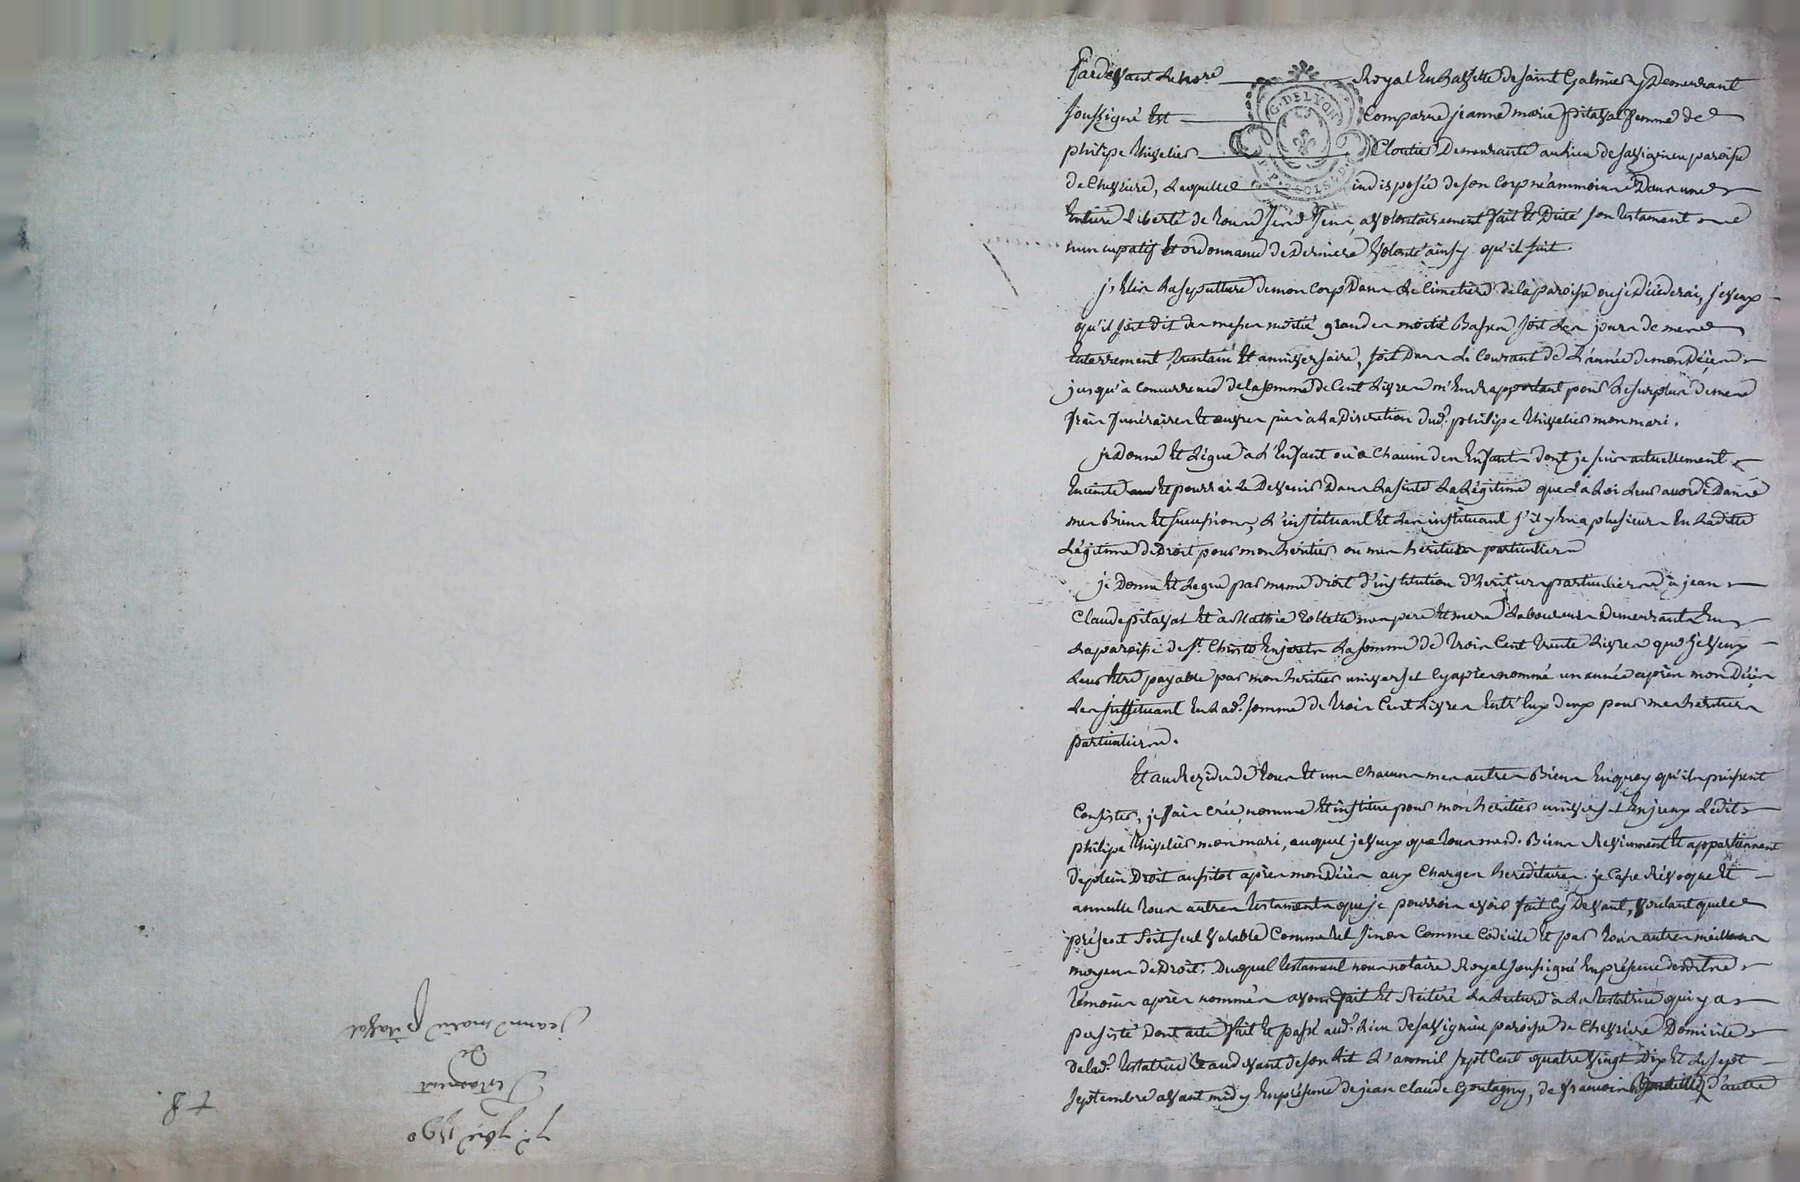 Pardevant le no.re Royal En La Ville de saint Galmier y Demeurant
soussigné Est Comparue jeanne marie pitaval femme de
philipe thivelier Cloutier Demeurante au Lieu de savignieu paroisse
de Chevriere, Laquelle indisposée de son Corp néammoins Dans une
Entiere Liberté de tous ses sens, a volontairement fait Et Dicté son testament
nuncupatif Et ordonnance de Derniere Volonté ainsy qu'il suit.
j'Elis La sepulture de mon Corp Dans Le Cimetiere de la paroisse ou je Décéderai, je veux
qu'il soit Dit des messes moitié grandes moitié Basses soit Les jours de mes
Enterrement, trentain Et anniversaire, soit Dans Le Courant de L'année de mon Décès
jusqu'a Concurrence de la somme de Cent Livres m'En rapportant pour Le surplus de mes
frais funéraires Et œuvres pies a La Discretion dud. philipe thivelier mon mari.
je Donne Et Légue à L'Enfant ou à Chacun des Enfants dont je suis actuellement
Enceinte Et pourrai Le Devenir Dans La suite La Légitime que La Loi Leur accorde Dans
mes Biens Et succession, L'instituant Et Les instituant s'il y En a plusieurs En Laditte
Légitime de Droit pour mon heritier ou mes héritiers particuliers
je Donne Et Legue par meme Droit d'institution d'heritiers particuliers à jean
Claude pitaval Et à Mathie Collette mes pere Et mere Laboureurs Demeurants En
La paroisse de St. Christo En jarets La somme de trois Cent trente Livres que je veux
Leur Etre payable par mon heritier universel Cy après nommé un année après mon Décès
Les instituant En Lad. somme de trois Cent Livres Entr'Eux deux pour mes heritiers
particuliers.
Et au Rezidu de tous Et un Chacuns mes autres Biens En quoy qu'ils puissent
Consister, je fais crée, nomme Et institue pour mon héritier universel En jceux Ledit
philipe thivelier mon mari, auquel je veux que tous mesd. Biens Reviennent Et appartiennent
de plein Droit aussitot après mon Décès aux Charges héréditaires. je Casse Révoque Et
annulle tous autres testaments que je pourrois avoir fait Cy Devant, voulant que Le
présent soit seul valable Comme tel sinon Comme Codicile Et par tous autres meilleurs
moyens de Droit. Duquel testament nous notaire Royal soussigné En présence desdits
témoins après nommés avons fait Et Réitéré La Lecture à La testatrice qui y a
persisté Dont acte fait Et passé aud. Lieu de savignieu paroisse de Chevriere Domicile
de lad. testatrice Et au devant de son Lit L'an mil sept Cent quatre vingt Dix Et Le sept
septembre avant midy En présence de jean Claude Goutagny, de francois d'autre
7e. 7bre 1790
Testament
de
jeanne marie pitaval